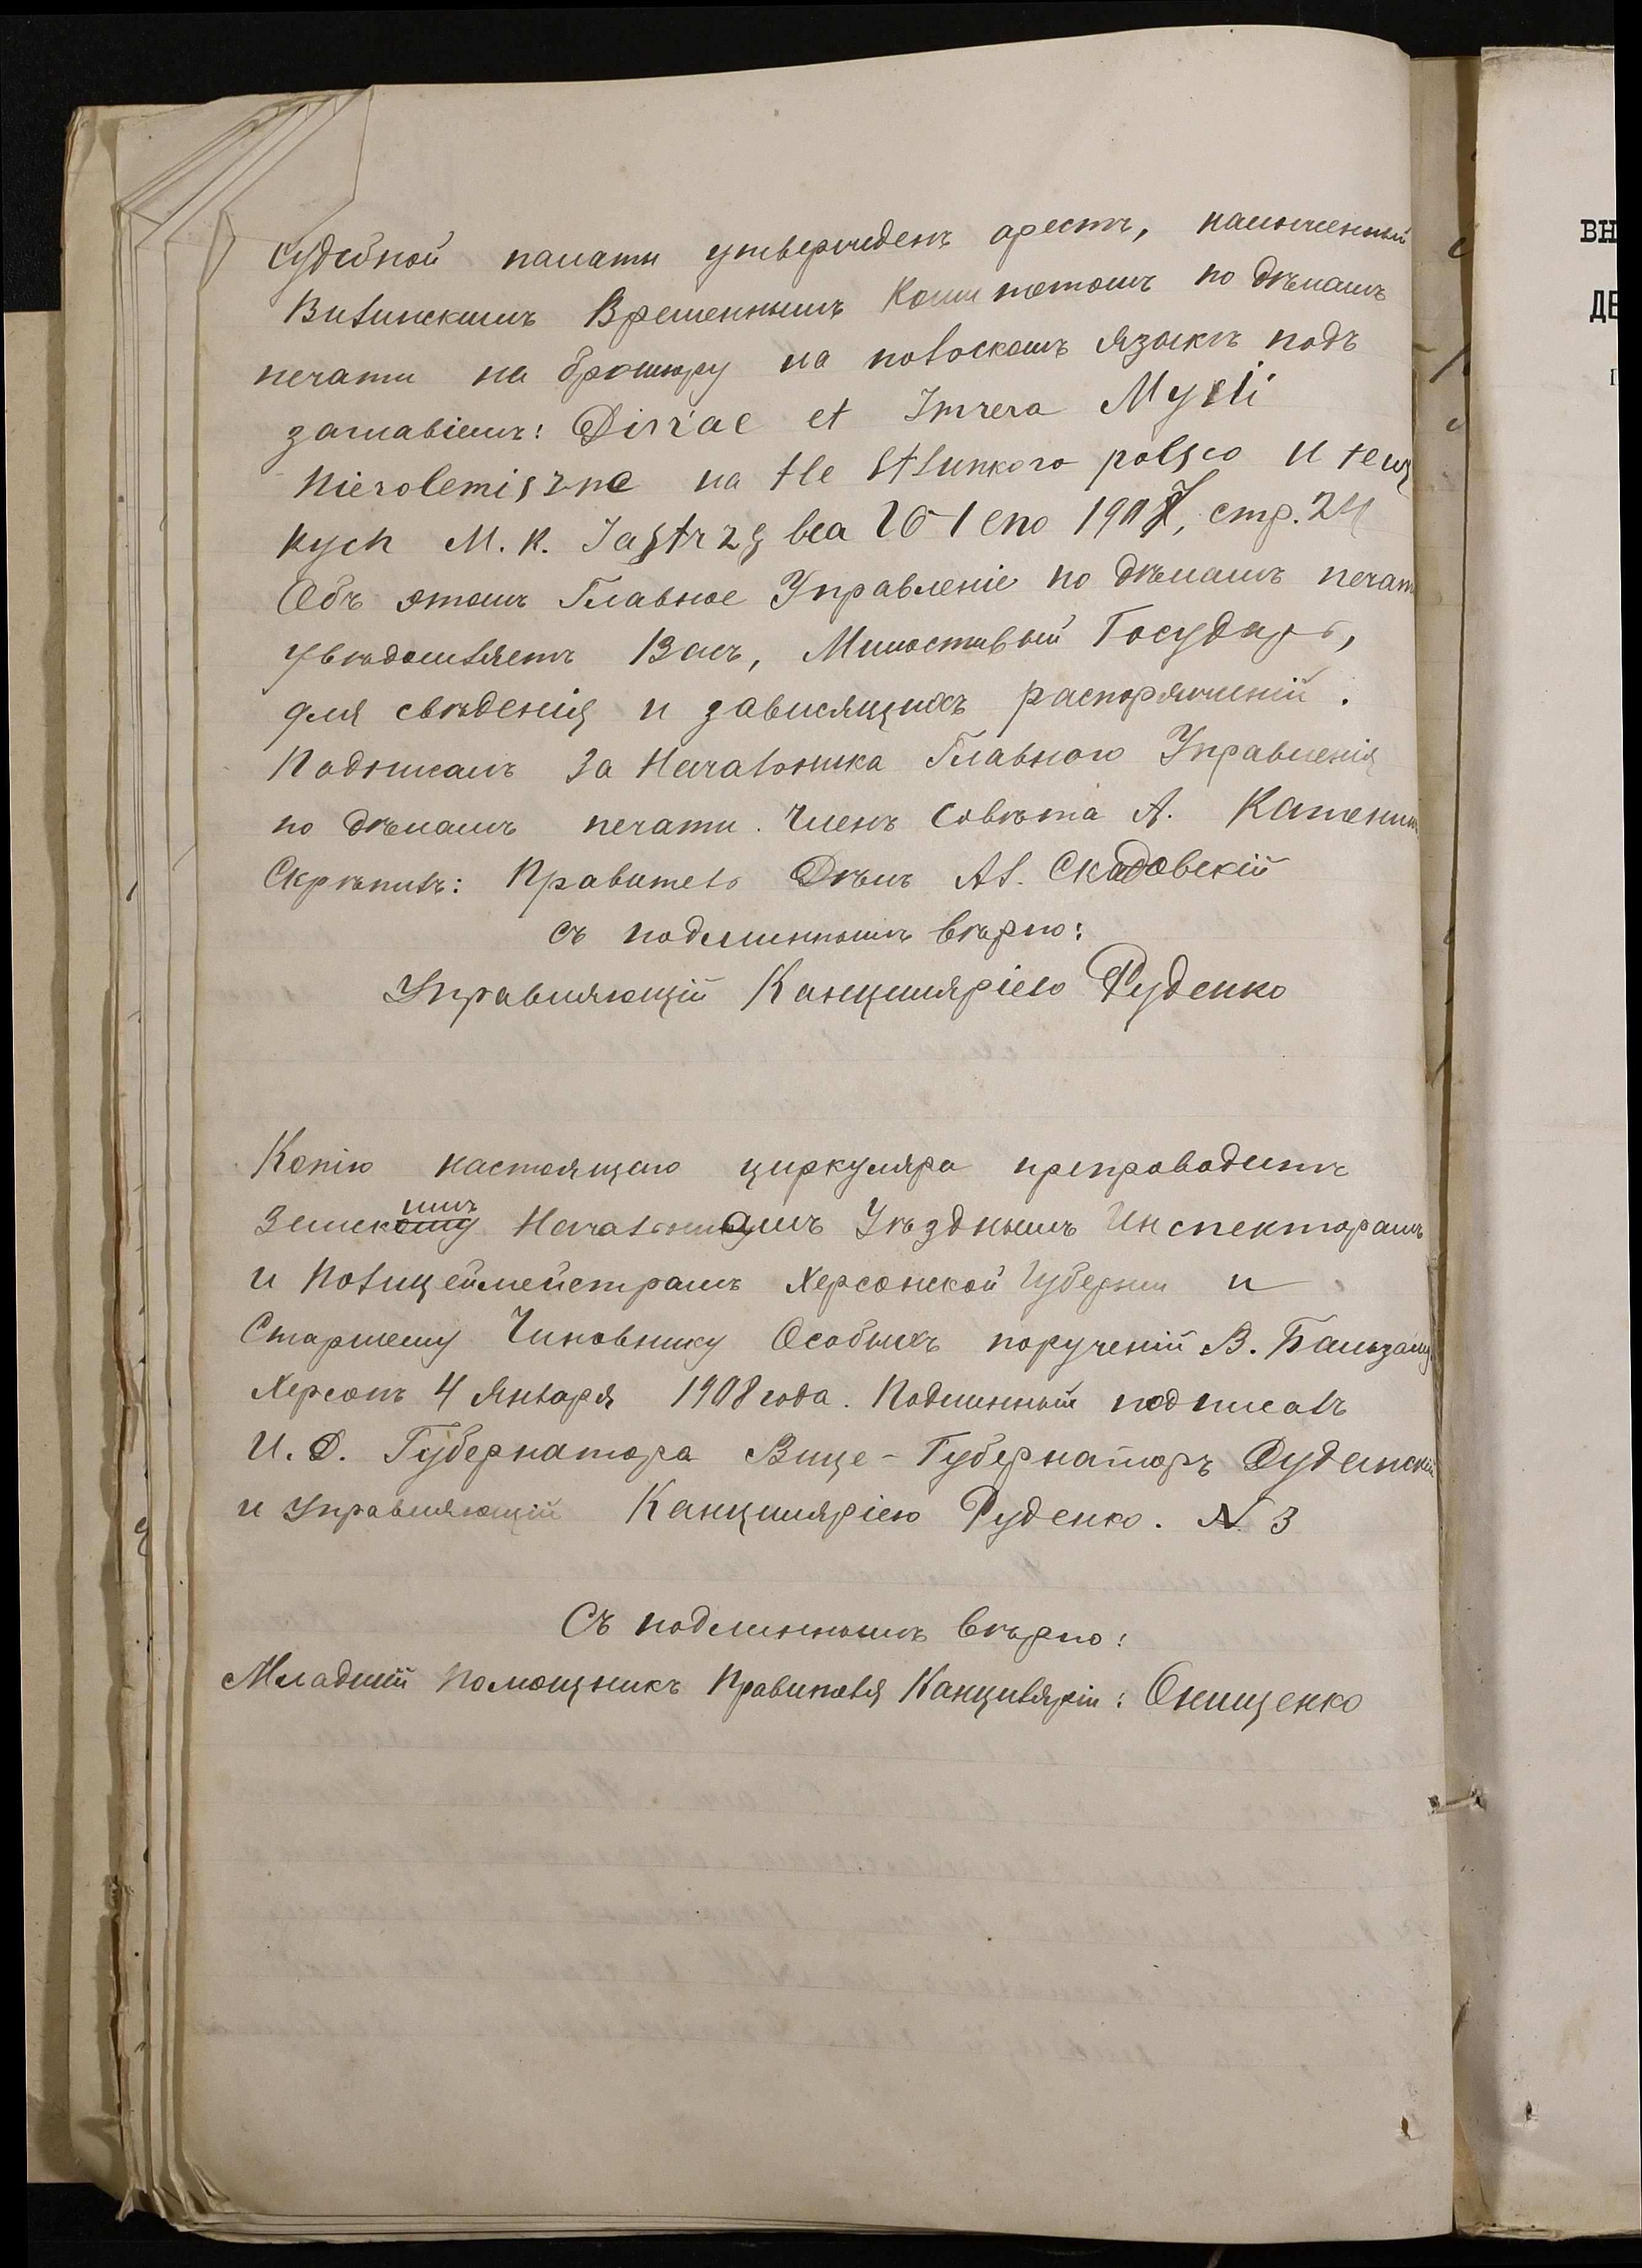 судебной палаты утвержденъ арестъ, наложенный
Виленскимъ Временнымъ Комитетомъ по дѣламъ
печати на брошюру на польскомъ языкѣ подъ
заглавіемъ: Diśrae et Imrera Myśli
Nierolemiszne на tle Stsunkoro polsco И teш
kych М. К. Jastrzębca Wilno 1907, стр. 24
Объ этомъ Главное Управленіе по дѣламъ печат
увѣдомляетъ Васъ, Милостивый Государь,
для свѣденія и зависящихъ распоряженій.
Подписалъ За Начальника Главного Управленія
по дѣламъ печати. Членъ Совѣта А. Катенинъ
Скрѣпилъ: Правитель Дѣлъ Ал. Скадовскій
съ подлиннымъ вѣрно:
Управляющій Канцеляріею Руденко
Копію настоящаго циркуляра препроводить
Земскимъ Начальникамъ Уѣзднымъ Инспекторамъ
и Полицеймейстрамъ Херсонской Губерніи и
Старшему Чиновнику Особыхъ порученій В. Бальзаму
Херсонъ 4 Января 1908 года. Подлинный подписалъ
И. Д. Губернатора Вице-Губернаторъ Дуденскій
и Управляющій Канцеляріею Руденко. N 3
Съ подлиннымъ вѣрно:
Младшій Помощникъ Правителя Канцелярій: Онищенко
ВН
ДЕ